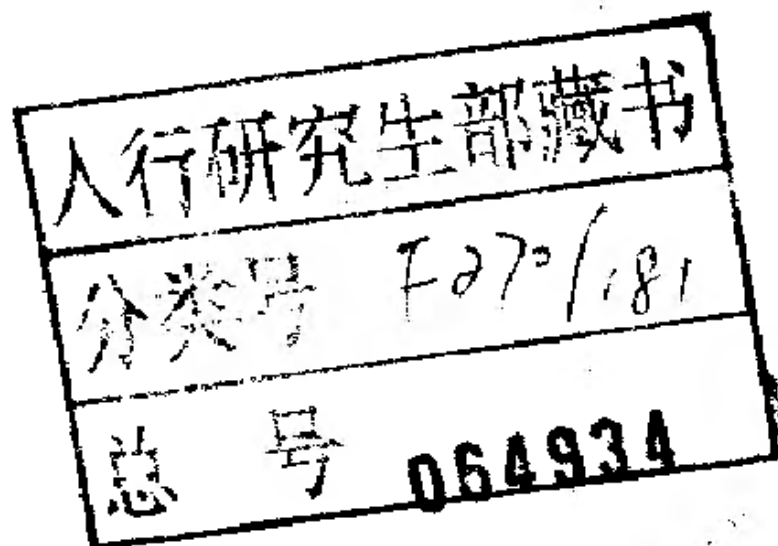 人行研究生部藏书
分类号 F270/181
总 号 064934